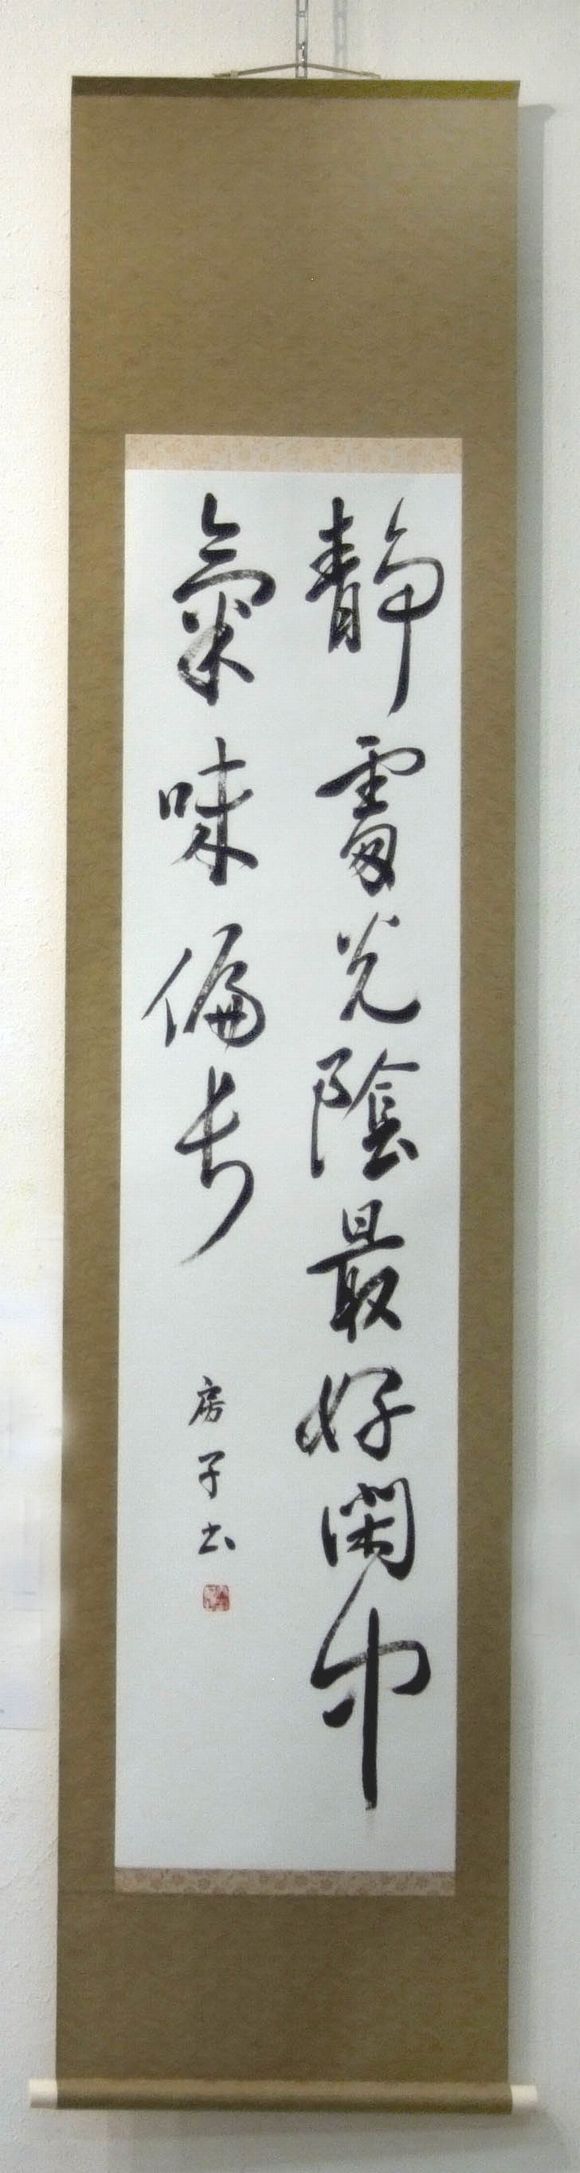 静裏光陰最好閑中
氣味偏長
房子書